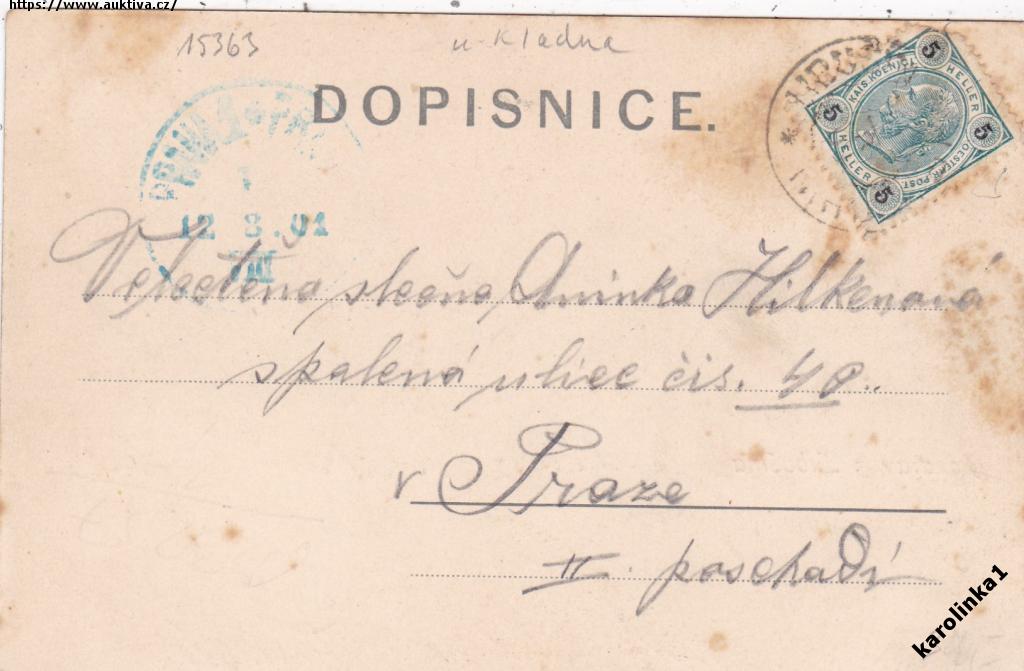 https://www.auktiva.cz/
15363
u Kladna
DOPISNICE.
5
KAIS. KOENIGL.
HELLER
5
5
HELLER
OESTERR. POST
5
12 8.01
VIII
Velectěná slečna Aninka Hilkenová
spálená ulice čís. 40.
v Praze
II. poschadí
karolinka1